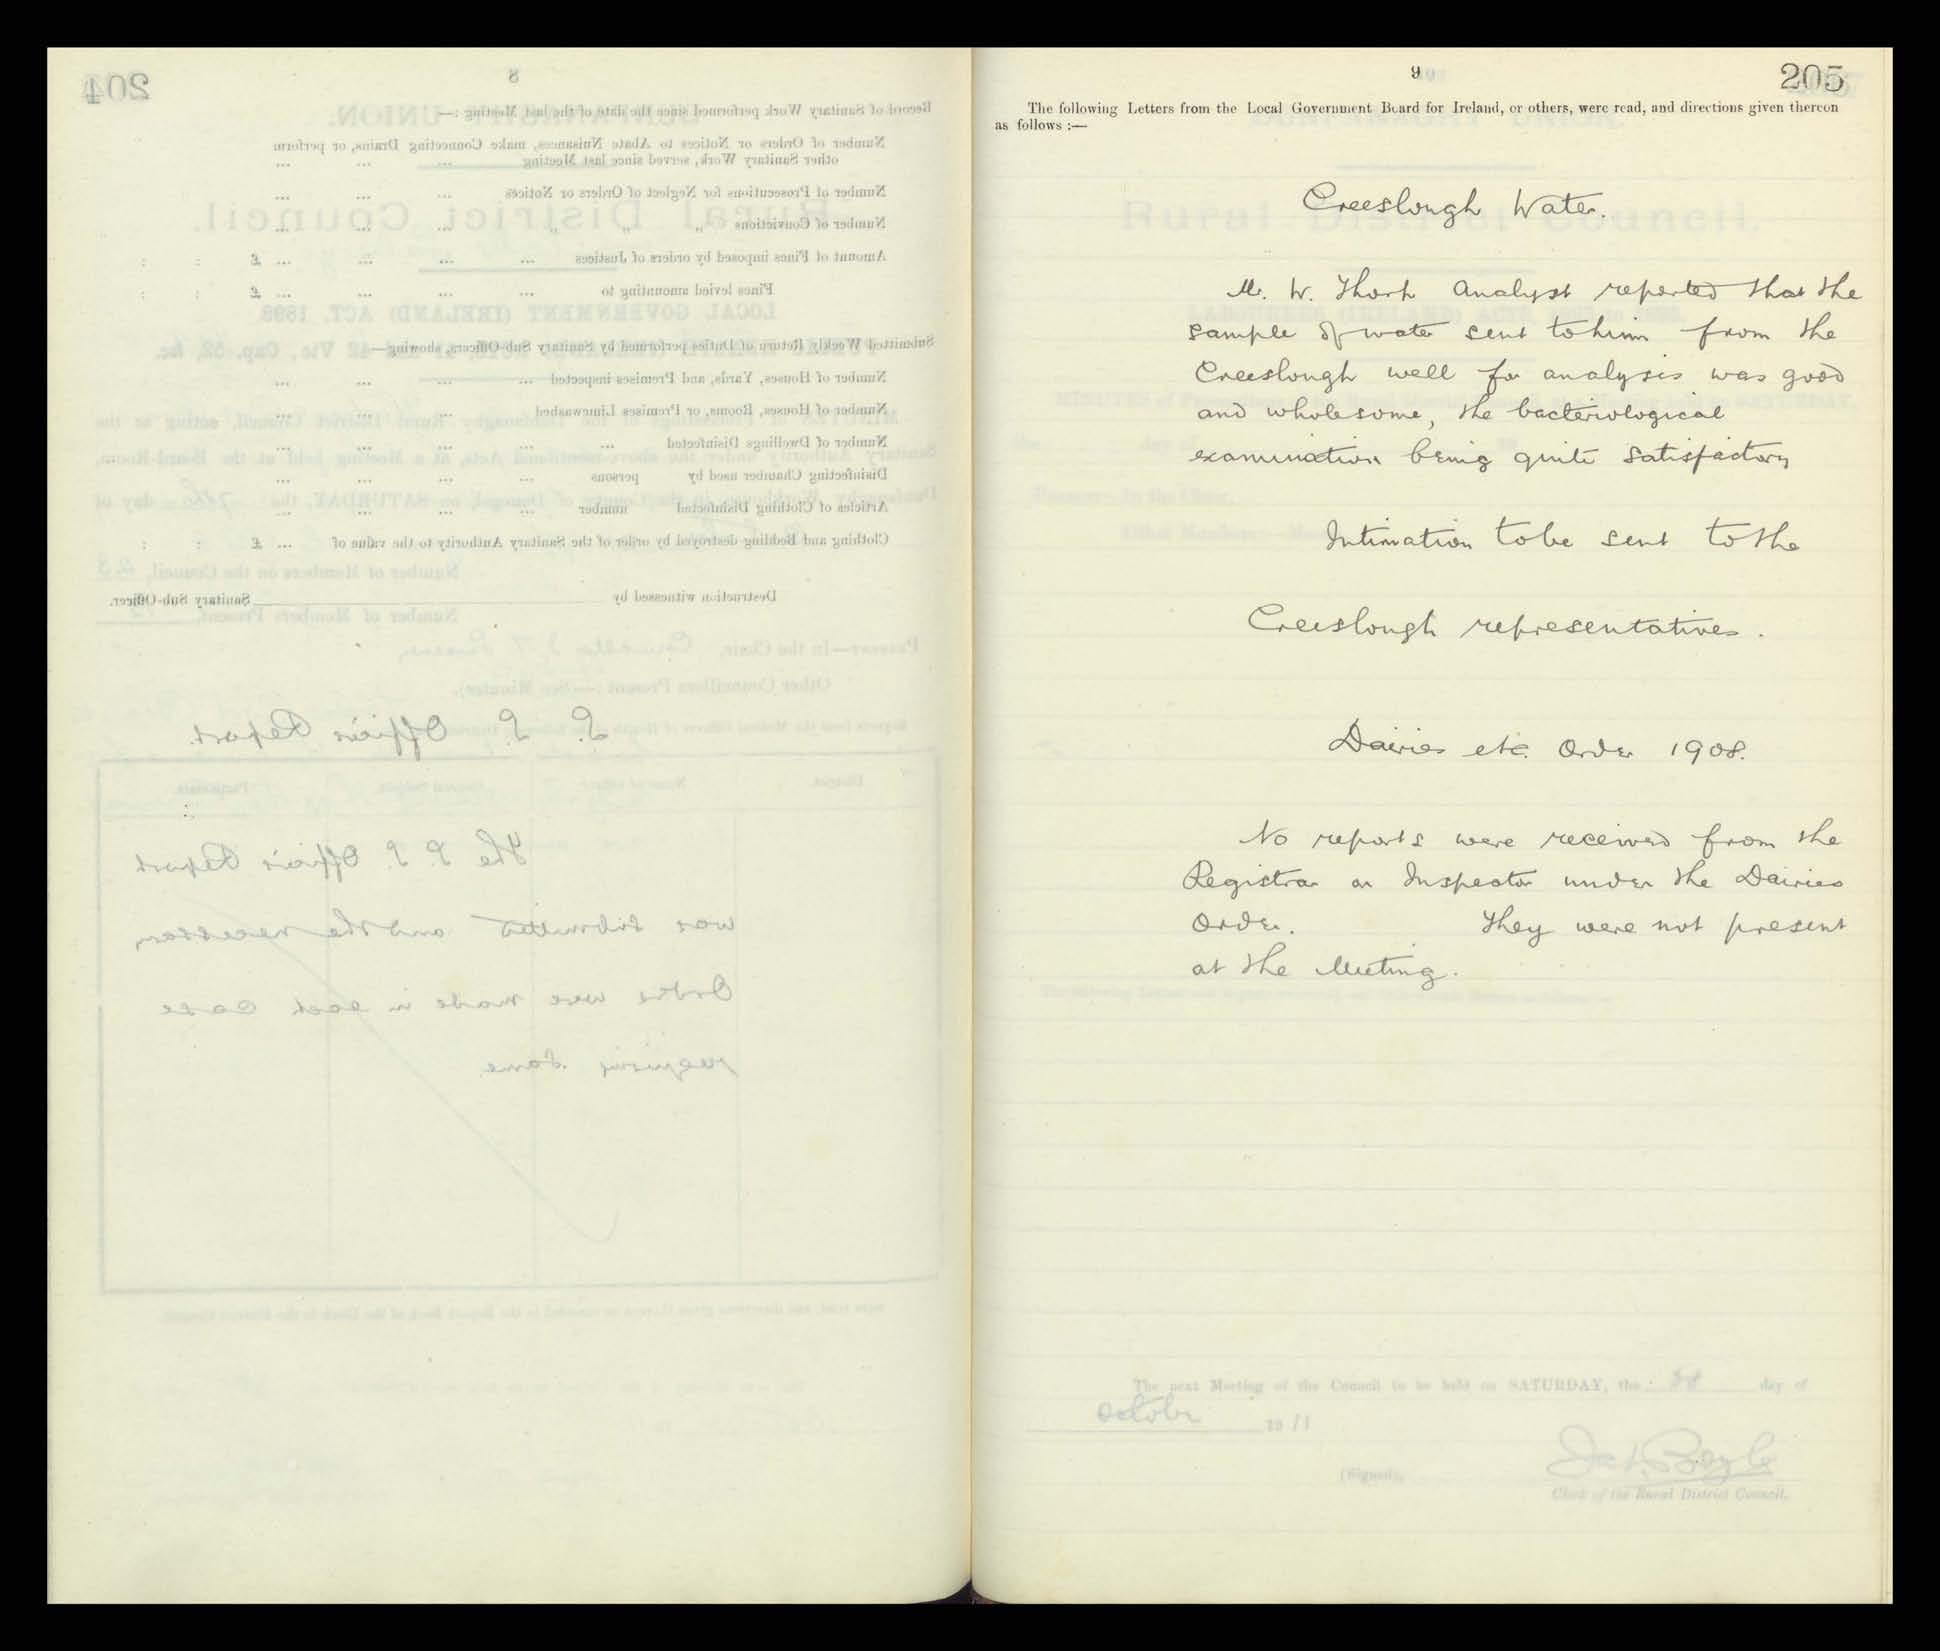 9
205
The following Letters from the Local Government Board for Ireland, or others, were read, and directions given thereon
as follows :—
Creeslough Water.
Mr. W. Thorp Analyst reported that the
sample of water sent to him from the
Creeslough well for analysis was good
and wholesome, the bacteriological
examination being quite satisfactory
Intimation to be sent to the
Creeslough representatives.
Dairies etc. Order 1908.
No reports were received from the
Registrar or Inspector under the Dairies
Order. They were not present
at the Meeting.
The next Meeting of the Council to be held on SATURDAY, the 28 day of
October 1911
(Signed),
Clerk of the Rural District Council.
204
8
Record of Sanitary Work performed since the date of the last Meeting :—
Number of Orders or Notices to Abate Nuisances, make Connecting Drains, or perform
other Sanitary Work, served since last Meeting ... ... ...
Number of Prosecutions for Neglect of Orders or Notices ... ... ...
Number of Convictions " " " ... ... ...
Amount of Fines imposed by orders of Justices ... ... ... ... £ : :
Fines levied amounting to ... ... ... ... £ : :
Submitted Weekly Return of Duties performed by Sanitary Sub-Officers, showing—
Number of Houses, Yards, and Premises inspected ... ... ... ...
Number of Houses, Rooms, or Premises Limewashed ... ... ...
Number of Dwellings Disinfected ... ... ... ... ...
Disinfecting Chamber used by persons ... ... ... ...
Articles of Clothing Disinfected number ... ... ... ...
Clothing and Bedding destroyed by order of the Sanitary Authority to the value of ... £ : :
Destruction witnessed by Sanitary Sub-Officer.
S. S. Officers Report.
The S. S. Officers Report
was submitted and the necessary
Orders were made in each case
requiring same